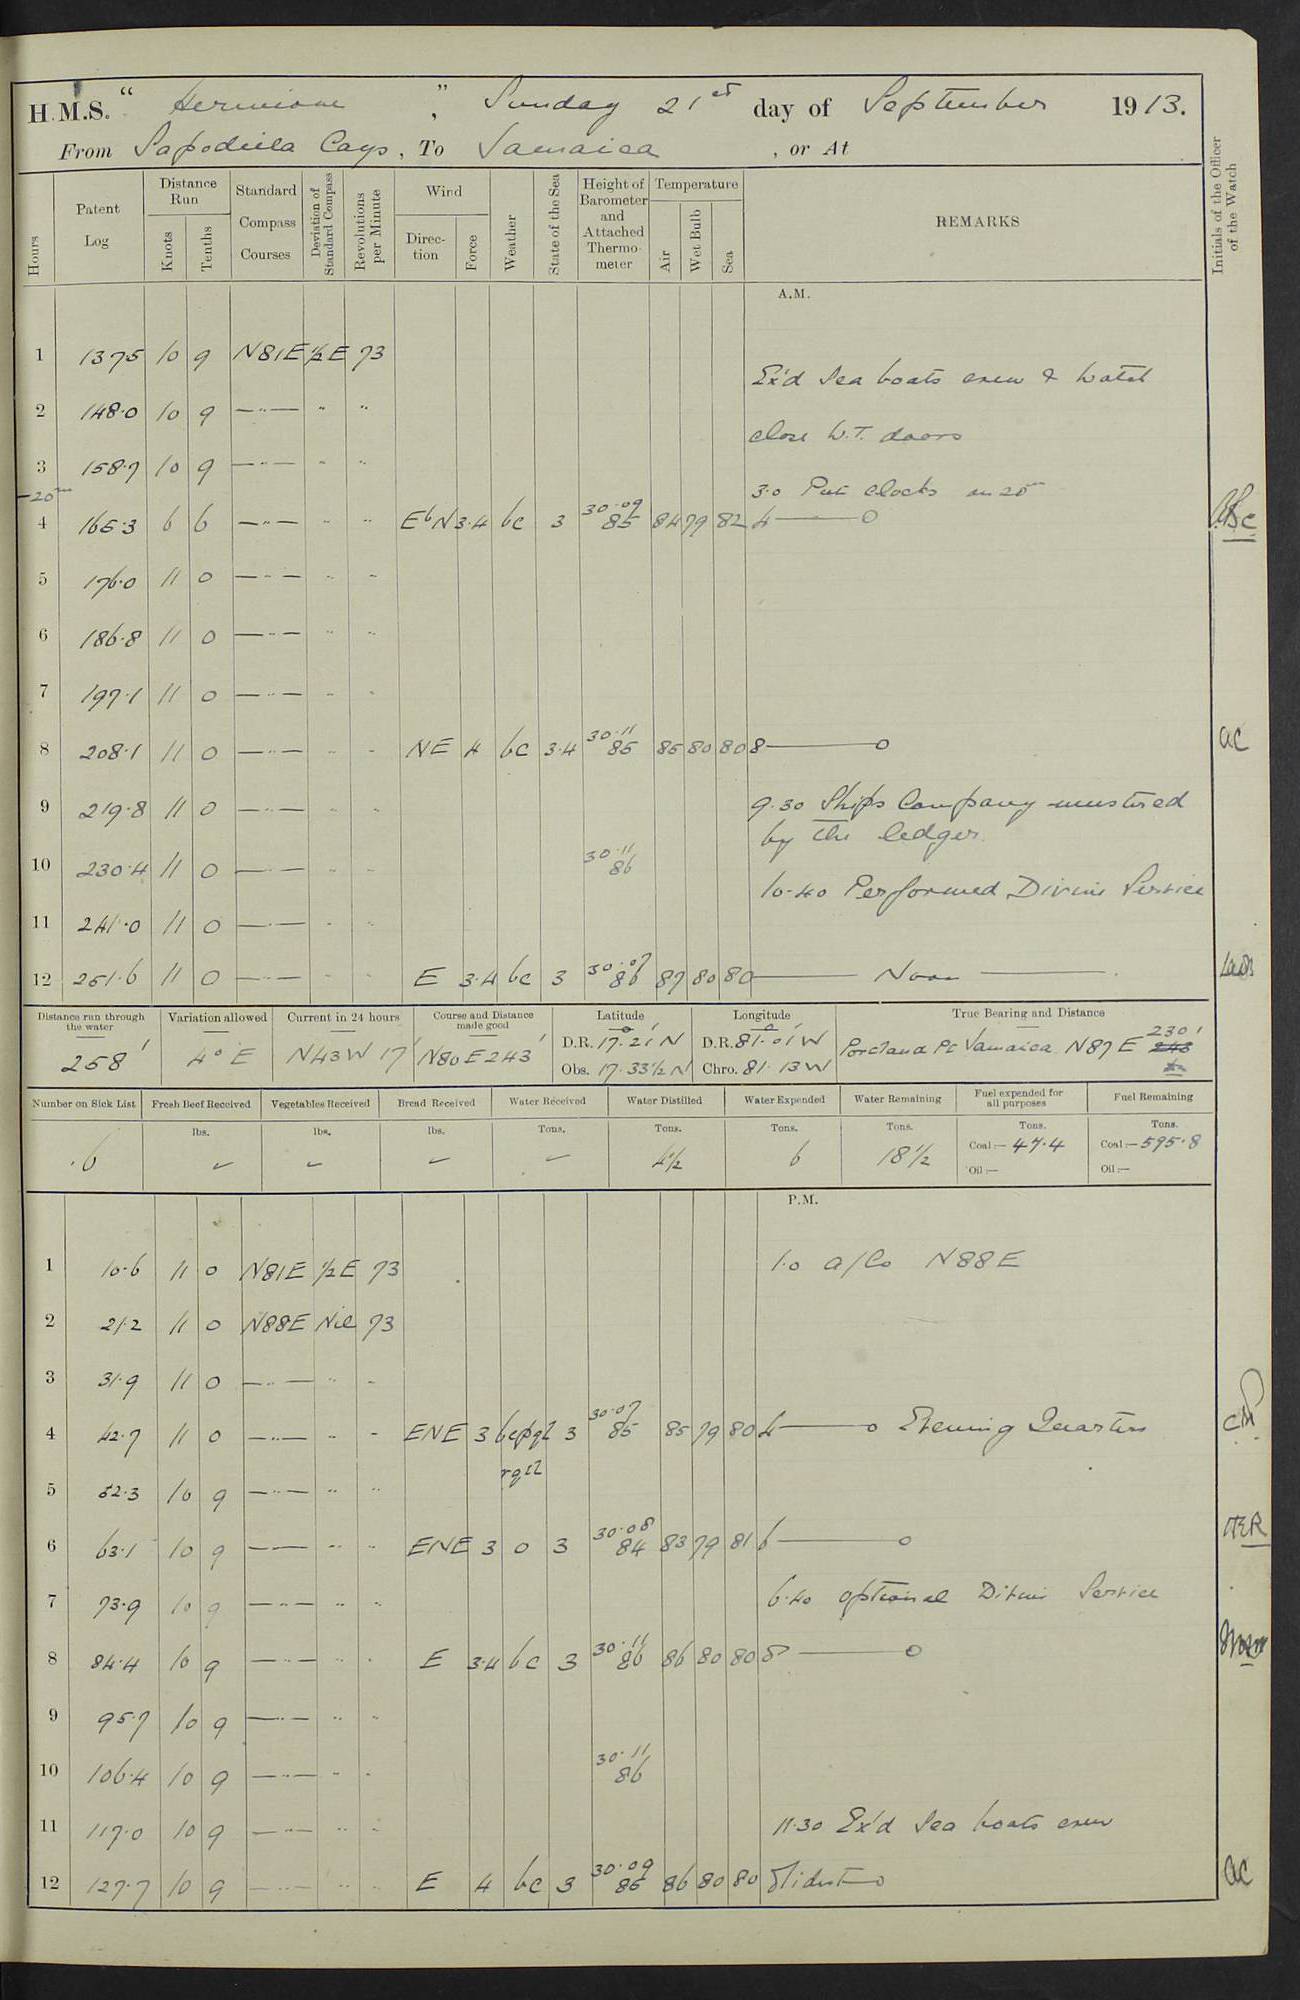 H.M.S. " Hermione " Sunday 21st day of September 1913.
From Sapodilla Cays, To Jamaica, or At
Hours
Patent Log
Distance Run
Knots
Tenths
Standard Compass Courses
Deviation of Standard Compass
Revolutions per Minute
Wind
Direction
Force
Weather
State of the Sea
Height of Barometer and Attached Thermometer
Temperature
Air
Wet Bulb
Sea
REMARKS
Initials of the Officer of the Watch
A.M.
1 137.5 10 9 N81E ½E 73
Ex'd Sea boats crew & watch
2 148.0 10 9 —"— " "
close W.T. doors
3 158.7 10 9 —"— " "
-20m 3.0 Put clocks on 20m
4 165.3 6 6 —"— " " EbN 3.4 bc 3 30.09 85 84 79 82 4——o
5 176.0 11 0 —"— " "
6 186.8 11 0 —"— " "
7 197.1 11 0 —"— " "
8 208.1 11 0 —"— " " NE 4 bc 3.4 30.11 85 85 80 80 8——o AC
9 219.8 11 0 —"— " " 9.30 Ships Company mustered
by the ledger.
10 230.4 11 0 —"— " " 30.11 86
10.40 Performed Divine Service
11 241.0 11 0 —"— " "
12 251.6 11 0 —"— " " E 3.4 bc 3 30.07 86 87 80 80 —— Noon ——
Distance run through the water
258'
Variation allowed
4° E
Current in 24 hours
N43W 17'
Course and Distance made good
N80E 243'
Latitude
D.R. 17° 21' N
Obs. 17. 33½ N
Longitude
D.R. 81° 01' W
Chro. 81. 13 W
True Bearing and Distance
Portland Pt Jamaica N87E 243 230'
Number on Sick List
6
Fresh Beef Received
lbs.
Vegetables Received
lbs.
Bread Received
lbs.
Water Received
Tons.
Water Distilled
Tons.
4½
Water Expended
Tons.
6
Water Remaining
Tons.
18½
Fuel expended for all purposes
Tons.
Coal:— 47.4
Oil:—
Fuel Remaining
Tons.
Coal:— 595.8
Oil:—
P.M.
1 10.6 11 0 N81E ½E 73 1.0 a/Co N88E
2 21.2 11 0 N88E Nil 73
3 31.9 11 0 —"— " "
4 42.7 11 0 —"— " " ENE 3 3 30.07 85 85 79 80 4——o Evening Quarters
5 52.3 10 9 —"— " "
6 63.1 10 9 —"— " " ENE 3 0 3 30.08 84 83 79 81 6——o
7 73.9 10 9 —"— " " 6.40 optional Divine Service
8 84.4 10 9 —"— " " E 3.4 bc 3 30.11 86 86 80 80 8——o
9 95.7 10 9 —"— " "
10 106.4 10 9 —"— " " 30.11 86
11 117.0 10 9 —"— " " 11.30 Ex'd Sea boats crew
12 127.7 10 9 —"— " " E 4 bc 3 30.09 85 86 80 80 Midnt——o AC